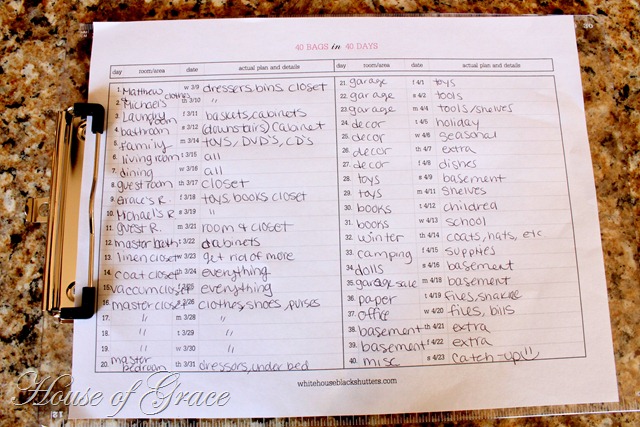 40 BAGS in 40 DAYS
day room/area date actual plan and details
1. Matthew clothes w 3/9 dressers, bins, closet
2. & Michael's th 3/10 "
3. Laundry room f 3/11 baskets, cabinets
4. bathroom s 3/12 (downstairs) cabinet
5. Family m 3/14 toys, DVD'S, CD'S
6. living room t 3/15 all
7. dining w 3/16 all
8. guest room th 3/17 closet
9. Grace's R. f 3/18 toys, books closet
10. Michael's R s 3/19 "
11. guest R. m 3/21 room & closet
12. master bath t 3/22 cabinets
13. linen closet w 3/23 get rid of more
14. coat closet th 3/24 everything
15. vaccum closet 3/25 everything
16. master closet 3/26 clothes, shoes, purses
17. " m 3/28 "
18. " t 3/29 "
19. " w 3/30 "
20. master bedroom th 3/31 dressors, under bed
day room/area date actual plan and details
21. garage f 4/1 toys
22. garage s 4/2 tools
23. garage m 4/4 tools/shelves
24. decor t 4/5 holiday
25. decor w 4/6 seasonal
26. decor th 4/7 extra
27. decor f 4/8 dishes
28. toys s 4/9 basement
29. toys m 4/11 shelves
30. books t 4/12 children
31. books w 4/13 school
32. winter th 4/14 coats, hats, etc.
33. camping f 4/15 supplies
34. dolls s 4/16 basement
35. garage sale m 4/18 basement
36. paper t 4/19 files,
37. office w 4/20 files, bills
38. basement th 4/21 extra
39. basement f 4/22 extra
40. misc s 4/23 catch-up!!!
whitehouseblackshutters.com
House of Grace